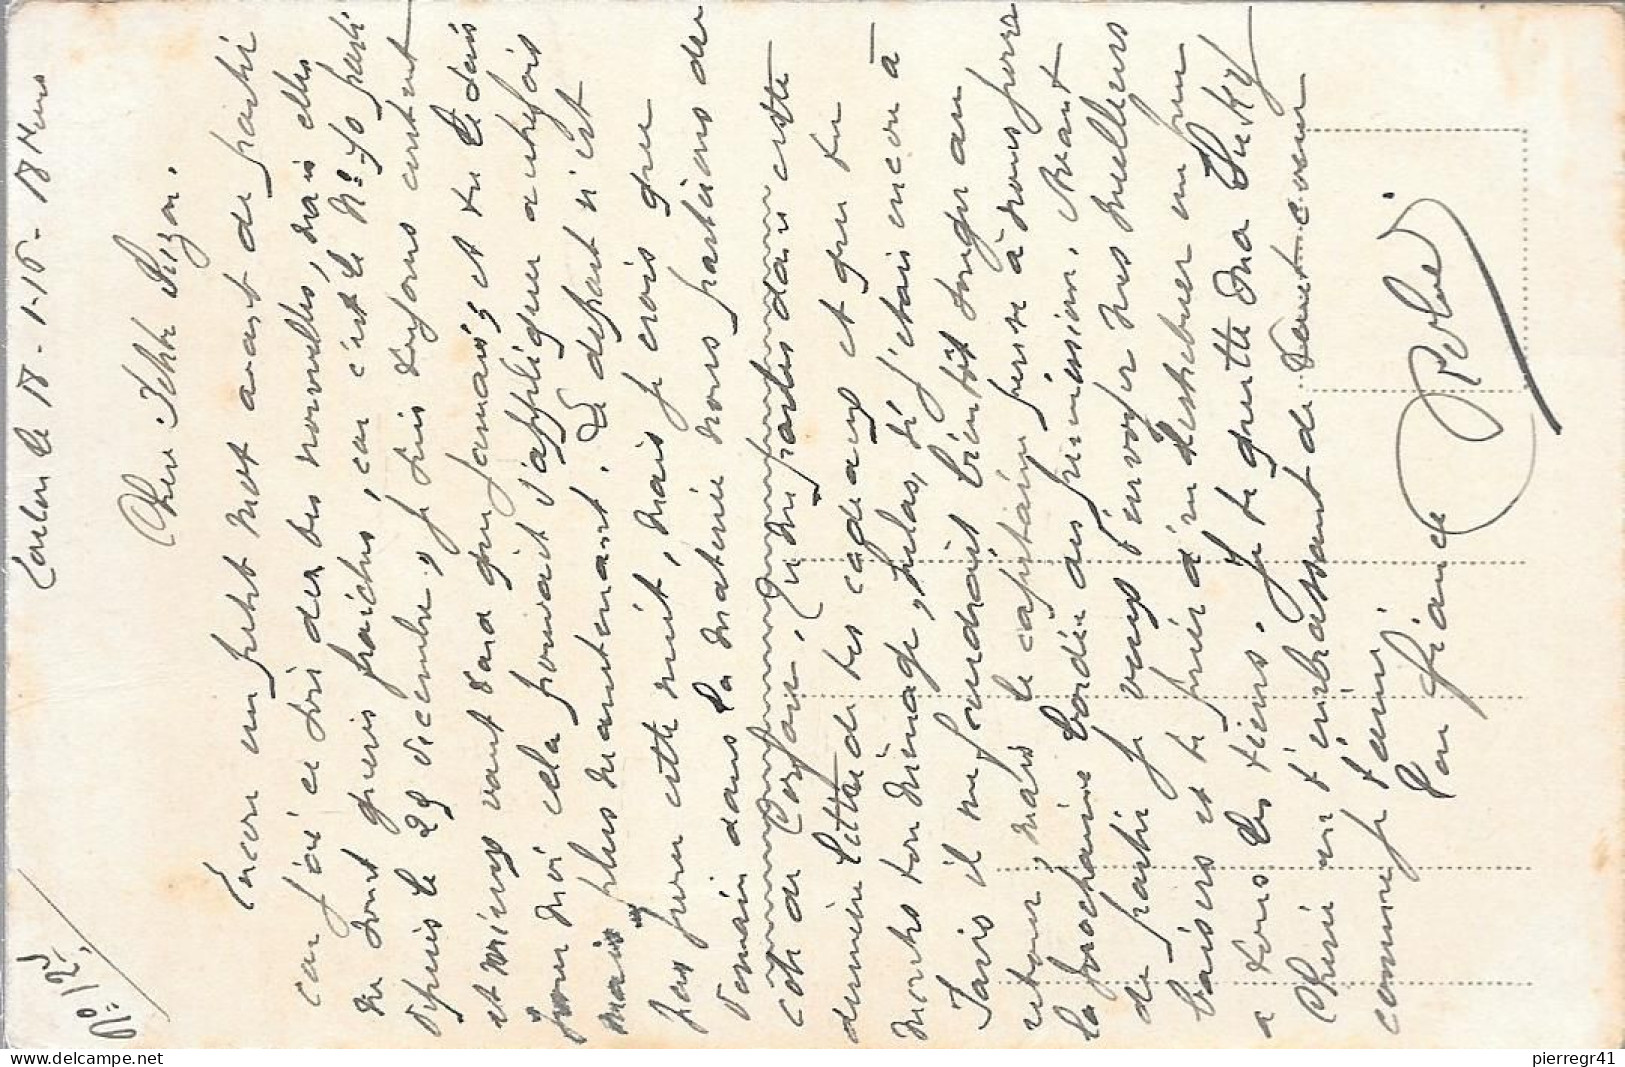 N° 125
Toulon le 18-1-16 - 18 heures
Chère Petite Suzon.
Encore un petit mot avant de partir
car j'ai ce soir des nouvelles, mais elles
ne sont guère fraîches, car c'est le N° 40 parti
depuis le 29 décembre, je suis content
et mieux vaut tard que jamais, et tu le sais
pour moi cela pouvait s'appliquer autrefois
mais plus maintenant. Le départ n'est
pas pour cette nuit, mais je crois que
demain dans la matinée nous partirons
côté de Corfou. Tu me parles dans cette
dernière lettre de tes cadeaux et que tu
montes ton ménage, hélas, si j'étais encore à
Paris il me faudrait bientôt songer au
retour, mais le capitaine pense à nous pour
la prochaine bordée des permissions. Avant
de partir je veux t'envoyer mes meilleurs
baisers et te prier d'en distribuer un peu
a tous les tiens. Je te quitte ma Suzy
Chérie en t'embrassant de tout cœur
comme je t'aime.
Ton fiancé
pierregr41